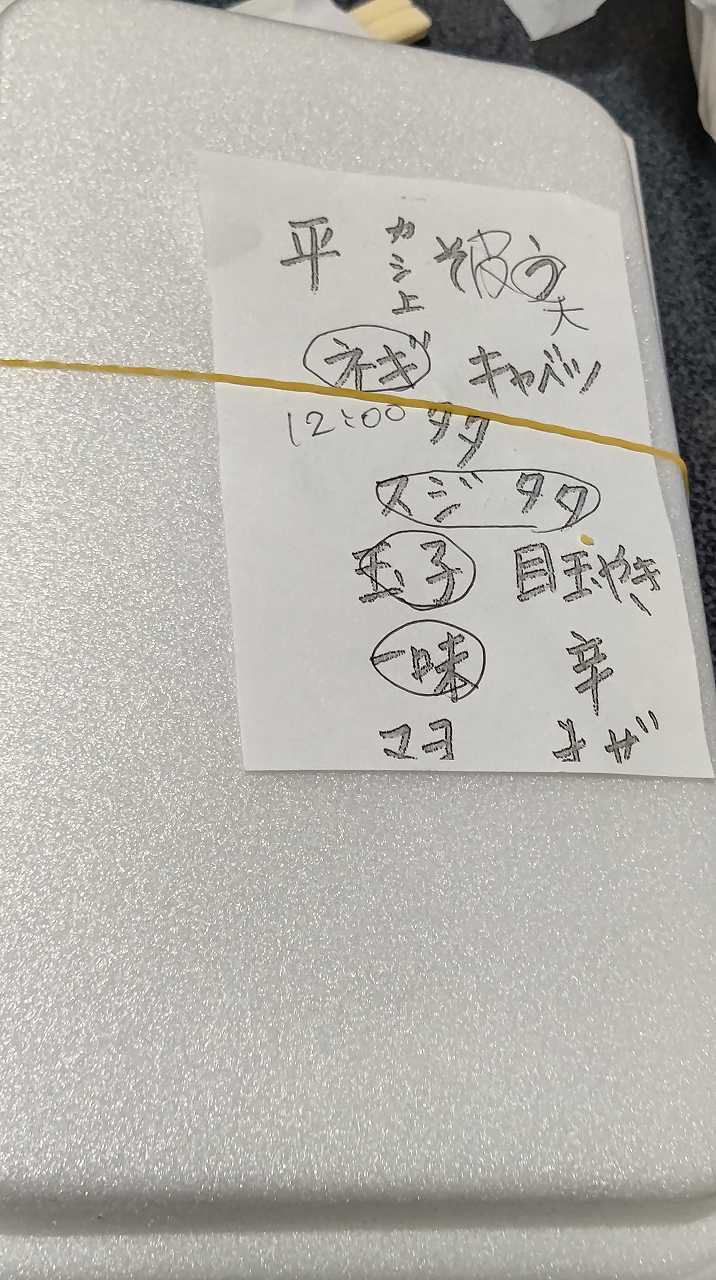 平 カシ上 そ 皮 う 大
ネギ キャベツ
12:00 タタ
スジ タタ
玉子 目玉やき
一味 辛
マヨ キザ